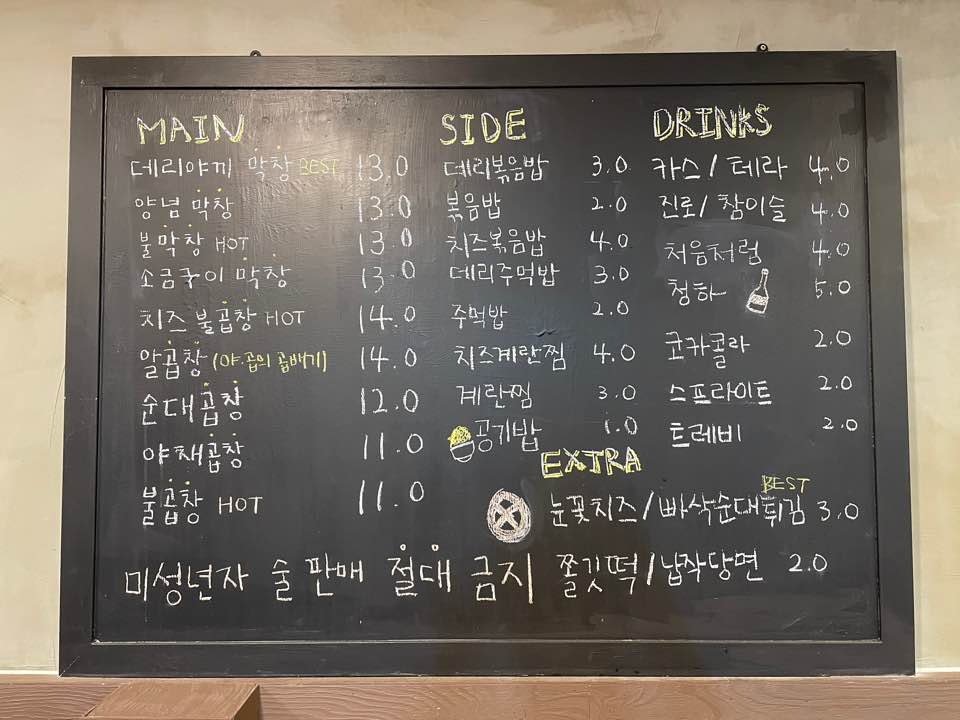 MAIN
데리야끼 막창 BEST 13.0
양념 막창 13.0
불막창 HOT 13.0
소금구이 막창 13.0
치즈 불곱창 HOT 14.0
알곱창 (야·곱의 곱배기) 14.0
순대곱창 12.0
야채곱창 11.0
불곱창 HOT 11.0
SIDE
데리볶음밥 3.0
볶음밥 2.0
치즈볶음밥 4.0
데리주먹밥 3.0
주먹밥 2.0
치즈계란찜 4.0
계란찜 3.0
공기밥 1.0
DRINKS
카스/테라 4.0
진로/참이슬 4.0
처음처럼 4.0
청하 5.0
코카콜라 2.0
스프라이트 2.0
트레비 2.0
EXTRA
BEST
눈꽃치즈/빠삭순대튀김 3.0
쫄깃떡/납작당면 2.0
미성년자 술 판매 절대 금지